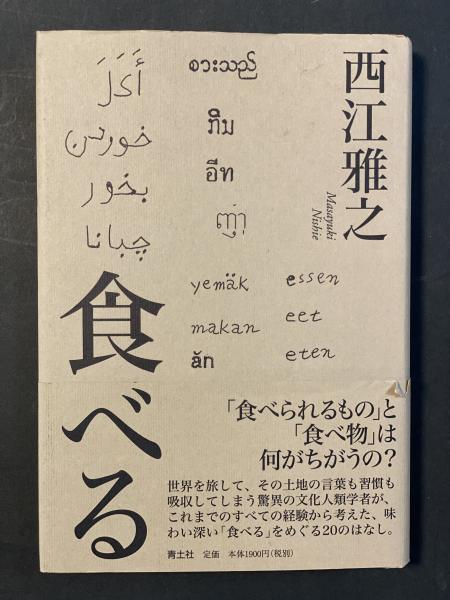 西江雅之
Masayuki
Nishie
أَكَلَ
خوردن
بخور
چبانا
စားသည်
อีท
yemäk
makan
ăn
essen
eet
eten
食べる
「食べられるもの」と
「食べ物」は
何がちがうの?
世界を旅して、その土地の言葉も習慣も
吸収してしまう驚異の文化人類学者が、
これまでのすべての経験から考えた、味
わい深い「食べる」をめぐる20のはなし。
青土社 定価 本体1900円(税別)